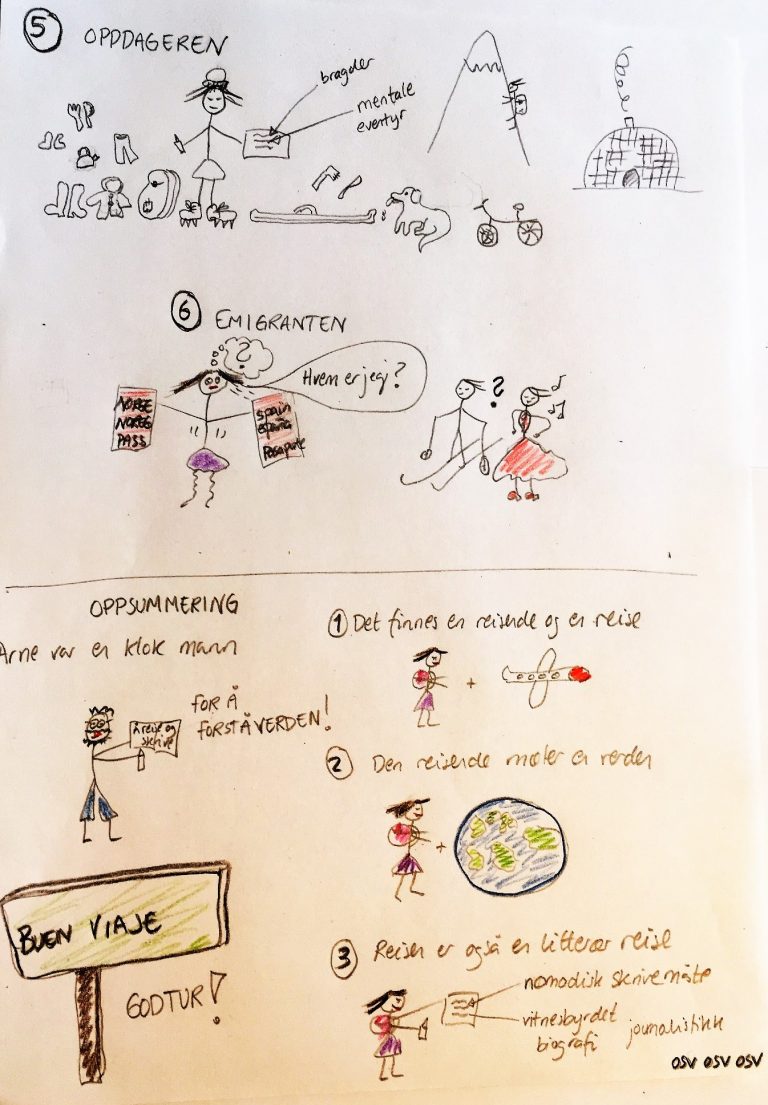 5 OPPDAGEREN
bragder
mentale
eventyr
6 EMIGRANTEN
?
Hvem er jeg?
NORGE
NOREG
PASS
spain
españa
Pasaporte
?
OPPSUMMERING
Arne var en klok mann
FOR Å
FORSTÅ VERDEN!
å reise og
skrive
BUEN VIAJE
GOD TUR!
1 Det finnes en reisende og en reise
+
2 Den reisende møter en verden
+
3 Reisen er også en litterær reise
nomadisk skrivemåte
vitnesbyrdet
biografi
journalistikk
OSV OSV OSV